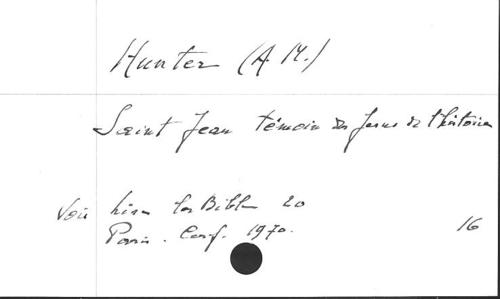 Hunter (A M.)
Saint Jean témoin du Jesus de l'histoire
Voir lire la Bible 20
Paris. Cerf. 1970.
16